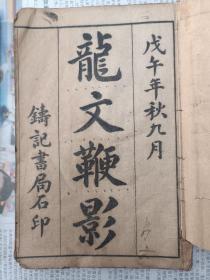 戊午年秋九月
龍文鞭影
鑄記書局石印